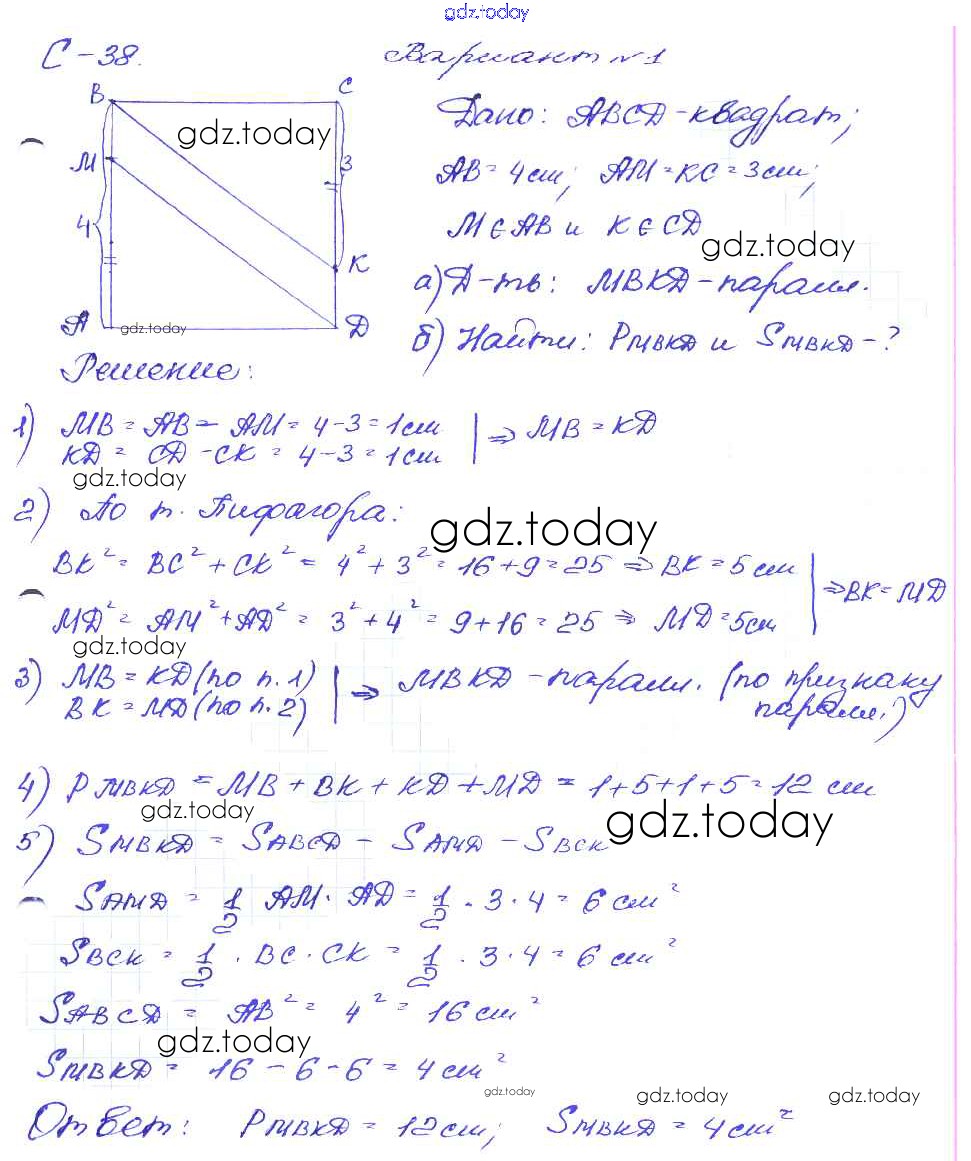 gdz.today
С-38.
Вариант №1
B
C
gdz.today
M
3
4
K
A
gdz.today
D
Дано: ABCD-квадрат;
AB = 4см; AM = KC = 3см;
M∈AB и K∈CD
gdz.today
а) Д-ть: MBKD-паралл.
б) Найти: PMBKD и SMBKD-?
Решение:
1) MB = AB - AM = 4-3 = 1см
KD = CD - CK = 4-3 = 1см | ⇒ MB = KD
gdz.today
2) По т. Пифагора:
gdz.today
BK² = BC² + CK² = 4² + 3² = 16+9 = 25 ⇒ BK = 5см
MD² = AM² + AD² = 3² + 4² = 9+16 = 25 ⇒ MD = 5см | ⇒ BK = MD
gdz.today
3) MB = KD (по п. 1)
BK = MD (по п. 2) | ⇒ MBKD-паралл. (по признаку
паралл.)
4) PMBKD = MB + BK + KD + MD = 1+5+1+5 = 12 см
gdz.today
gdz.today
5) SMBKD = SABCD - SAMD - SBCK
SAMD = 1/2 AM · AD = 1/2 · 3 · 4 = 6 см²
SBCK = 1/2 · BC · CK = 1/2 · 3 · 4 = 6 см²
SABCD = AB² = 4² = 16 см²
gdz.today
SMBKD = 16 - 6 - 6 = 4 см²
gdz.today
gdz.today
gdz.today
Ответ: PMBKD = 12см; SMBKD = 4см²